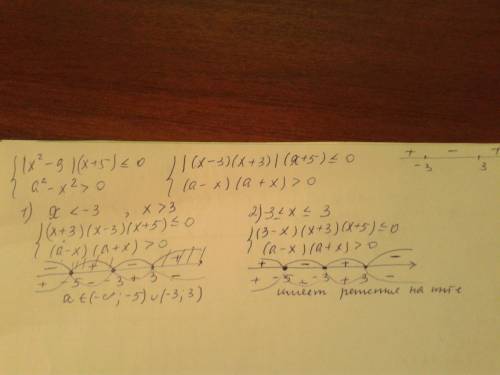 { |x² - 9|(x+5) ≤ 0
{ a² - x² > 0
{ |(x-3)(x+3)|(x+5) ≤ 0
{ (a-x)(a+x) > 0
+ - +
-3 3
1) x < -3 , x > 3
{ (x+3)(x-3)(x+5) ≤ 0
{ (a-x)(a+x) > 0
- + - +
+ -5 - -3 + 3 -
a ∈ (-∞; -5) ∪ (-3; 3)
2) -3 ≤ x ≤ 3
{ (3-x)(x+3)(x+5) ≤ 0
{ (a-x)(a+x) > 0
+ - + -
+ -5 - -3 + 3 -
имеет решения на